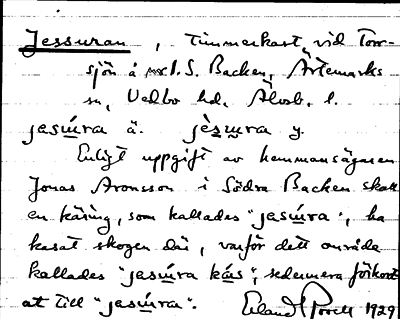 Jessuran, timmerkast vid Torr-
sjön å S. Backen, Ärtemarks
sn, Vedbo hd, Älvsb. l.
jasúra ä. jèsura y.
Enligt uppgift av hemmansägaren
Jonas Aronsson i Södra Backen skall
en käring, som kallades "jasúra", ha
kasat skogen där, varför dett område
kallades "jasúra kás", sedermera förkort-
at till "jasúra". Erland 1929